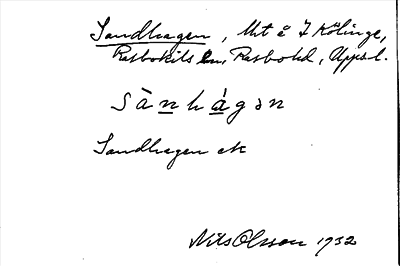 Sandhagen, Mt å I Kölinge,
Rasbokils sn, Rasbo hd, Upps. l.
sànhágən
Sandhagen ek
Nils Olsson 1932